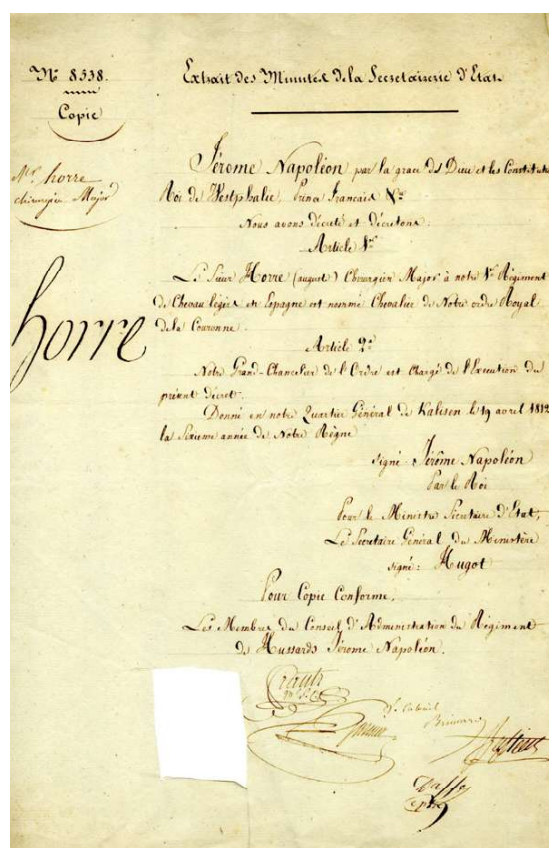 N° 8338.
Copie
Extrait des Minutes de la Secretairerie d'Etat.
Mr. horre
chirurgien Major
horre
Jérome Napoléon par la grace de Dieu et les Constitutions
Roi de Westphalie, Prince Francais &ca
Nous avons décreté et décretons:
Article 1er
Le Sieur Horre (august) Chirurgien Major à notre 1er Régiment
de Chevau légers en Espagne est nommé Chevalier de Notre ordre Royal
de la Couronne.
Article 2e
Notre Grand-Chancelier de l'Ordre est chargé de l'Execution du
présent décret.
Donné en notre Quartier Général de Kalisch le 19 avril 1812
la Sixieme année de Notre Règne
signé: Jérôme Napoléon
Par le Roi
Pour le Ministre Secretaire d'Etat,
Le Secretaire Général du Ministère
signé: Hugot
Pour Copie Conforme,
Les Membres du Conseil d'Administration du Régiment
de Hussards Jérome Napoléon.